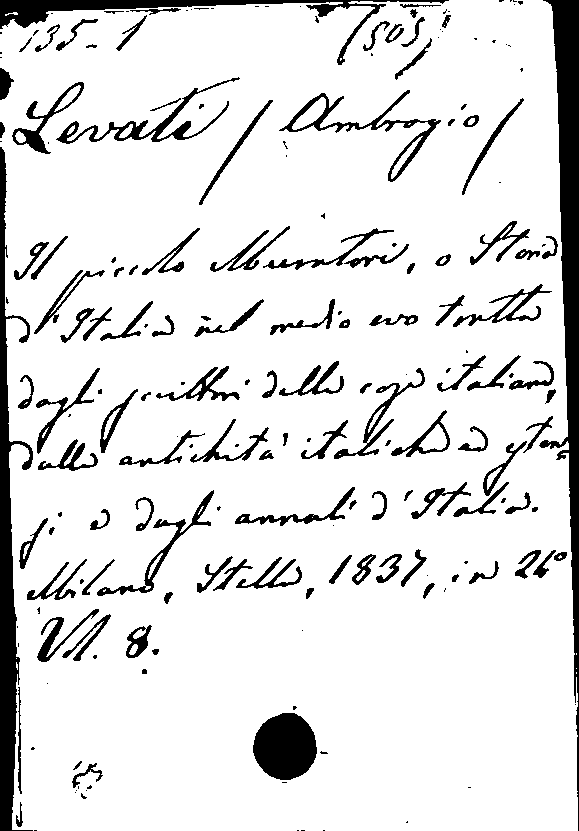 135-1 (505)
Levati / Ambrogio /
Il piccolo Muratori, o Storia
d'Italia nel medio evo tratta
dagli scrittori delle cose italiane,
dalle antichità italiche ed esten=
si e dagli annali d'Italia.
Milano, Stella, 1837, in 24º
Vol. 8.